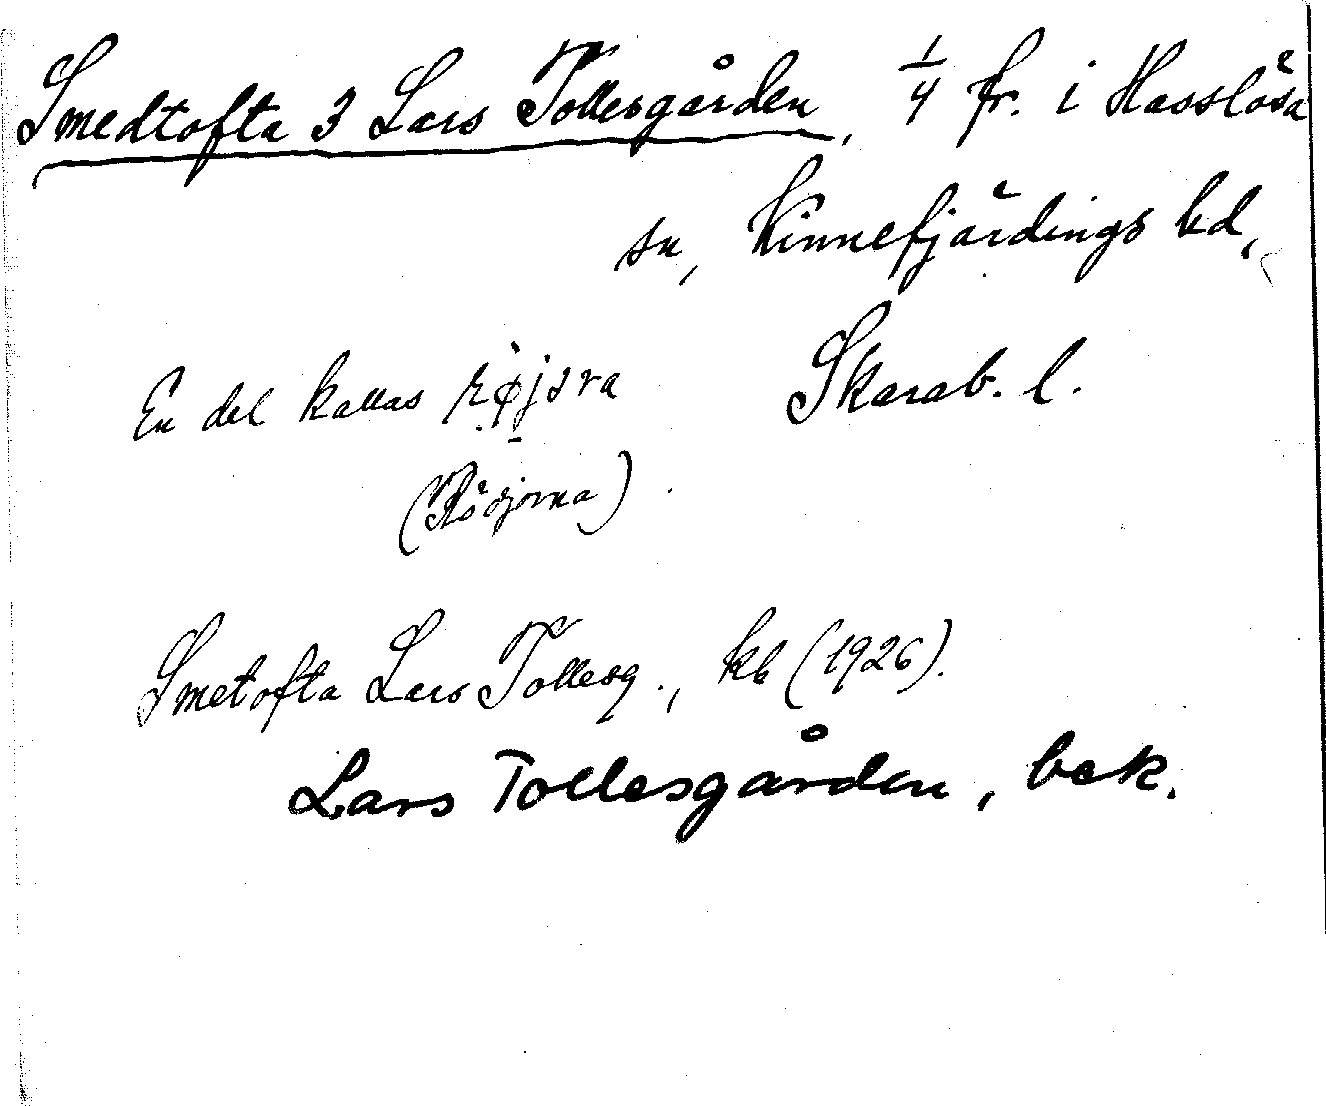 Smedtofta 3 Lars Tollesgården, 1/4 fr. i Hasslösa
sn, Kinnefjärdings hd,
Skarab. l.
En del kallas
(Rödjorna)
Smetofta Lars Tollesg., kb (1926).
Lars Tollesgården, bek.